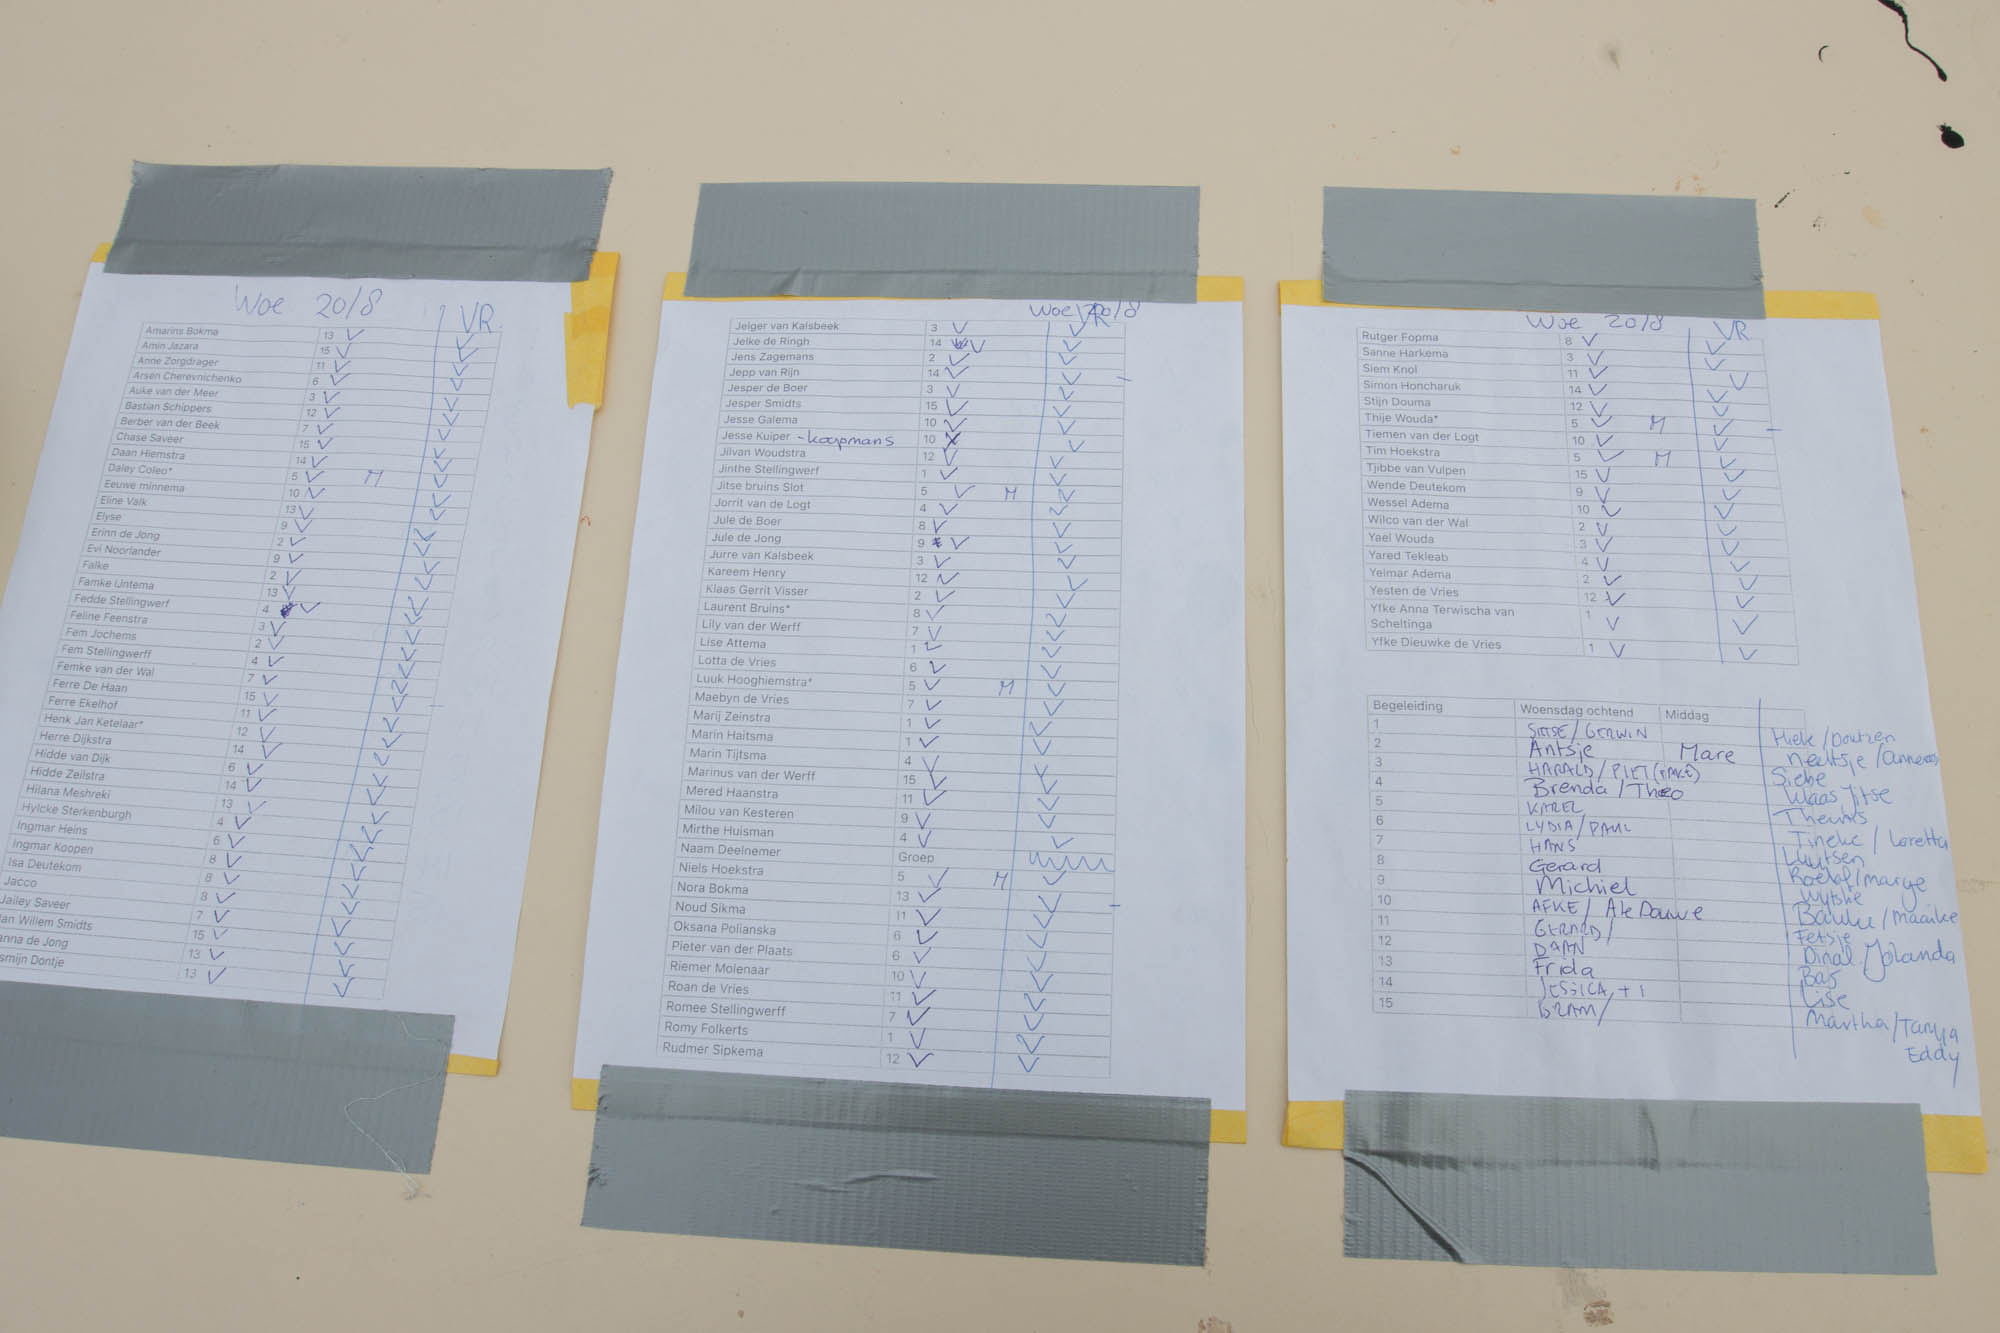 Woe 20/8 VR
Amarins Bokma 13 V V
Amin Jazara 15 V V
Anne Zorgdrager 11 V V
Arsen Cherevnichenko 6 V V
Auke van der Meer 3 V V
Bastian Schippers 12 V V
Berber van der Beek 7 V V
Chase Saveer 15 V V
Daan Hiemstra 14 V V
Daley Coleo* 5 V M V
Eeuwe minnema 10 V V
Eline Valk 13 V V
Elyse 9 V V
Erinn de Jong 2 V V
Evi Noorlander 9 V V
Falke 2 V V
Famke IJntema 13 V V
Fedde Stellingwerf 4 V V
Feline Feenstra 3 V V
Fem Jochems 2 V V
Fem Stellingwerff 4 V V
Femke van der Wal 7 V V
Ferre De Haan 15 V V
Ferre Ekelhof 11 V V
Henk Jan Ketelaar* 12 V V
Herre Dijkstra 14 V V
Hidde van Dijk 6 V V
Hidde Zeilstra 14 V V
Hilana Meshreki 13 V V
Hylcke Sterkenburgh 4 V V
Ingmar Heins 6 V V
Ingmar Koopen 8 V V
Isa Deutekom 8 V V
Jacco 8 V V
Jailey Saveer 7 V V
an Willem Smidts 15 V V
anna de Jong 13 V V
smijn Dontje 13 V V
Woe 20/8 VR
Jelger van Kalsbeek 3 V V
Jelke de Ringh 14 V V
Jens Zagemans 2 V V
Jepp van Rijn 14 V V
Jesper de Boer 3 V V
Jesper Smidts 15 V V
Jesse Galema 10 V V
Jesse Kuiper -koopmans 10 V V
Jilvan Woudstra 12 V V
Jinthe Stellingwerf 1 V V
Jitse bruins Slot 5 V M V
Jorrit van de Logt 4 V V
Jule de Boer 8 V V
Jule de Jong 9 V V
Jurre van Kalsbeek 3 V V
Kareem Henry 12 V V
Klaas Gerrit Visser 2 V V
Laurent Bruins* 8 V V
Lily van der Werff 7 V V
Lise Attema 1 V V
Lotta de Vries 6 V V
Luuk Hooghiemstra* 5 V M V
Maebyn de Vries 7 V V
Marij Zeinstra 1 V V
Marin Haitsma 1 V V
Marin Tijtsma 4 V V
Marinus van der Werff 15 V V
Mered Haanstra 11 V V
Milou van Kesteren 9 V V
Mirthe Huisman 4 V V
Naam Deelnemer Groep
Niels Hoekstra 5 V M V
Nora Bokma 13 V V
Noud Sikma 11 V V
Oksana Polianska 6 V V
Pieter van der Plaats 6 V V
Riemer Molenaar 10 V V
Roan de Vries 11 V V
Romee Stellingwerff 7 V V
Romy Folkerts 1 V V
Rudmer Sipkema 12 V V
Woe 20/8 VR
Rutger Fopma 8 V V
Sanne Harkema 3 V V
Siem Knol 11 V V
Simon Honcharuk 14 V V
Stijn Douma 12 V V
Thije Wouda* 5 V M V
Tiemen van der Logt 10 V V
Tim Hoekstra 5 V M V
Tjibbe van Vulpen 15 V V
Wende Deutekom 9 V V
Wessel Adema 10 V V
Wilco van der Wal 2 V V
Yael Wouda 3 V V
Yared Tekleab 4 V V
Yelmar Adema 2 V V
Yesten de Vries 12 V V
Yfke Anna Terwischa van
Scheltinga 1 V V
Yfke Dieuwke de Vries 1 V V
Begeleiding Woensdag ochtend Middag
1 SIETSE/GERWIN Hieke/Doutzen
2 Antsje Mare Neeltsje/
3 HARALD/PIET Siebe
4 Brenda/Theo Klaas Jitse
5 KAREL Theunis
6 LYDIA/PAUL Tineke/Loretta
7 HANS Luutsen
8 Gerard Roelof/marge
9 Michiel Wytske
10 AFKE/Ate Douwe Bauke/Maaike
11 GERARD/ Fetsje
12 DAAN Dinal Jolanda
13 Frida Bas
14 JESSICA+1 Lise
15 BRAM/ Martha/Tanya
Eddy